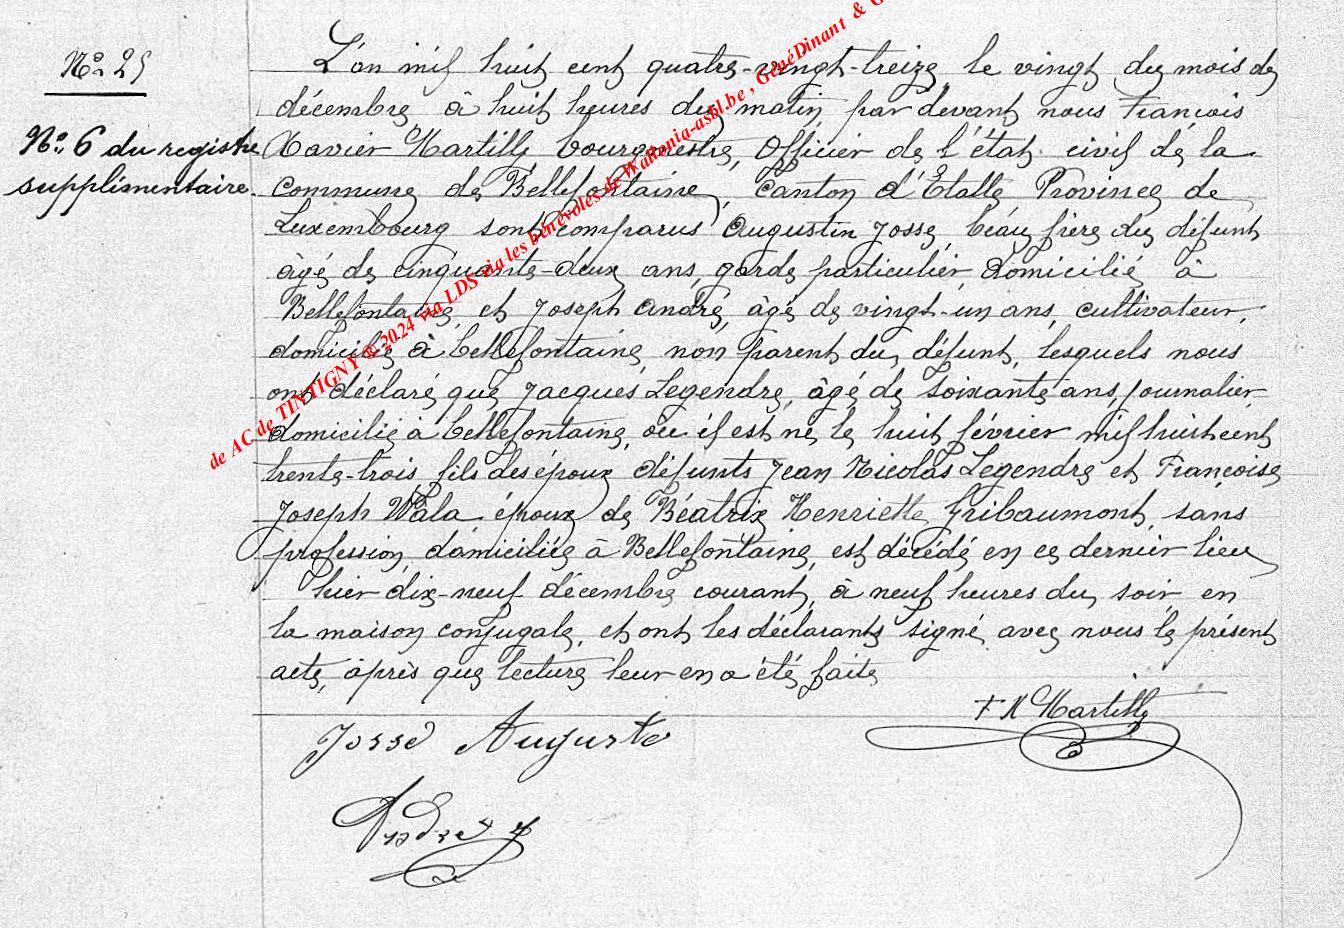 N° 25
N° 6 du registre
supplémentaire.
L'an mil huit cent quatre-vingt-treize, le vingt du mois de
décembre, à huit heures du matin, par devant nous François
Xavier Martilly, bourgmestre, Officier de l'état civil de la
Commune de Bellefontaine, Canton d'Étalle, Province de
Luxembourg sont comparus Augustin Josse, beau frère du défunt
âgé de cinquante-deux ans, garde particulier, domicilié à
Bellefontaine, et Joseph André, âgé de vingt-un ans, cultivateur,
domicilié à Bellefontaine, non parent du défunt, lesquels nous
ont déclaré que Jacques Legendre, âgé de soixante ans, journalier
domicilié à Bellefontaine, où il est né le huit février mil huit cent
trente-trois, fils des époux défunts Jean Nicolas Legendre et Françoise
Joseph Wala, époux de Béatrix Henriette Gribaumont, sans
profession, domiciliée à Bellefontaine, est décédé en ce dernier lieu
hier dix-neuf décembre courant, à neuf heures du soir, en
la maison conjugale, et ont les déclarants signé avec nous le présent
acte, après que lecture leur en a été faite
F X Martilly
Josse Auguste
André J
de AC de TINTIGNY © 2024 via LDS via les bénévoles de Wallonia-asbl.be , GénéDinant &